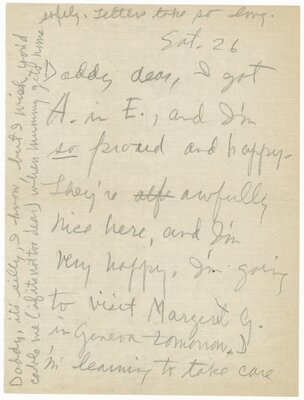 safely. Letters take so long.
Sat. 26
Daddy dear, I got
A. in E., and I'm
so proud and happy.
They're awfully
nice here, and I'm
very happy. I'm going
to visit Margaret G.
in Geneva tomorrow.
I'm learning to take care
Daddy, it's silly, I know, but I wish you'd
cable me (if it's not too dear) when mummy gets home